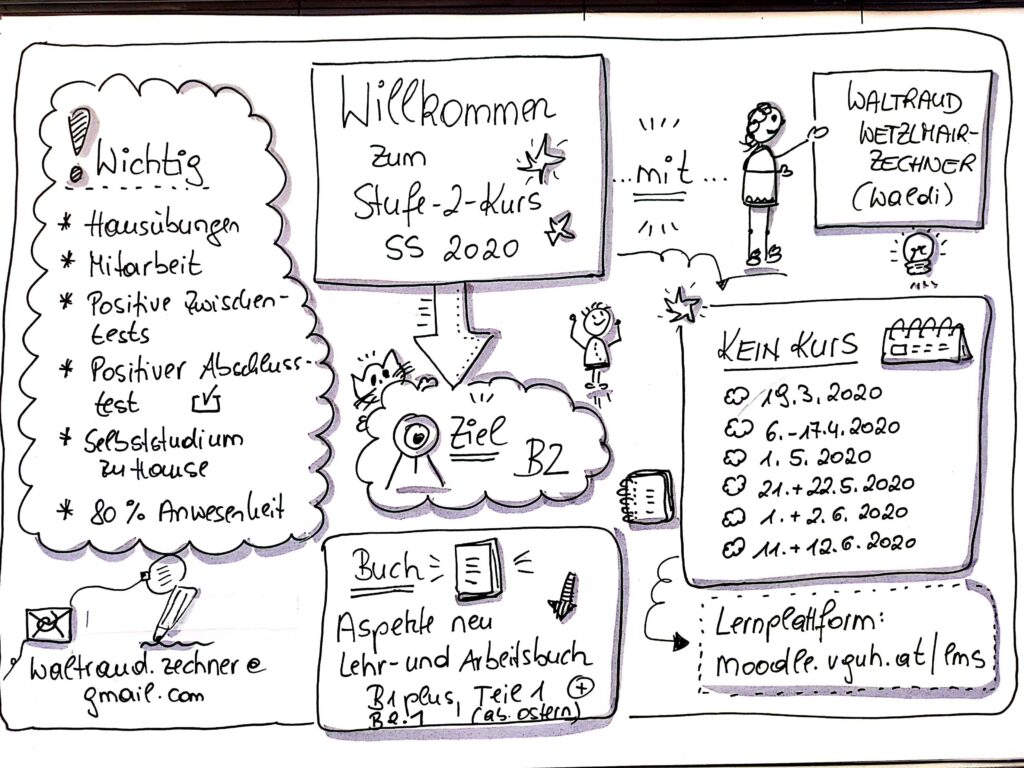 Wichtig
* Hausübungen
* Mitarbeit
* Positive Zwischen-
tests
* Positiver Abschluss-
test
* Selbststudium
zu Hause
* 80% Anwesenheit
waltraud.zechner@
gmail.com
Willkommen
zum
Stufe-2-Kurs
SS 2020
...mit...
WALTRAUD
WETZLMAIR-
ZECHNER
(Waldi)
Ziel
B2
Buch
Aspekte neu
Lehr- und Arbeitsbuch
B1 plus, Teil 1 +
B2.1 (ab Ostern)
KEIN KURS
19.3.2020
6.-17.4.2020
1.5.2020
21.+22.5.2020
1.+2.6.2020
11.+12.6.2020
Lernplattform:
moodle.vguh.at/lms